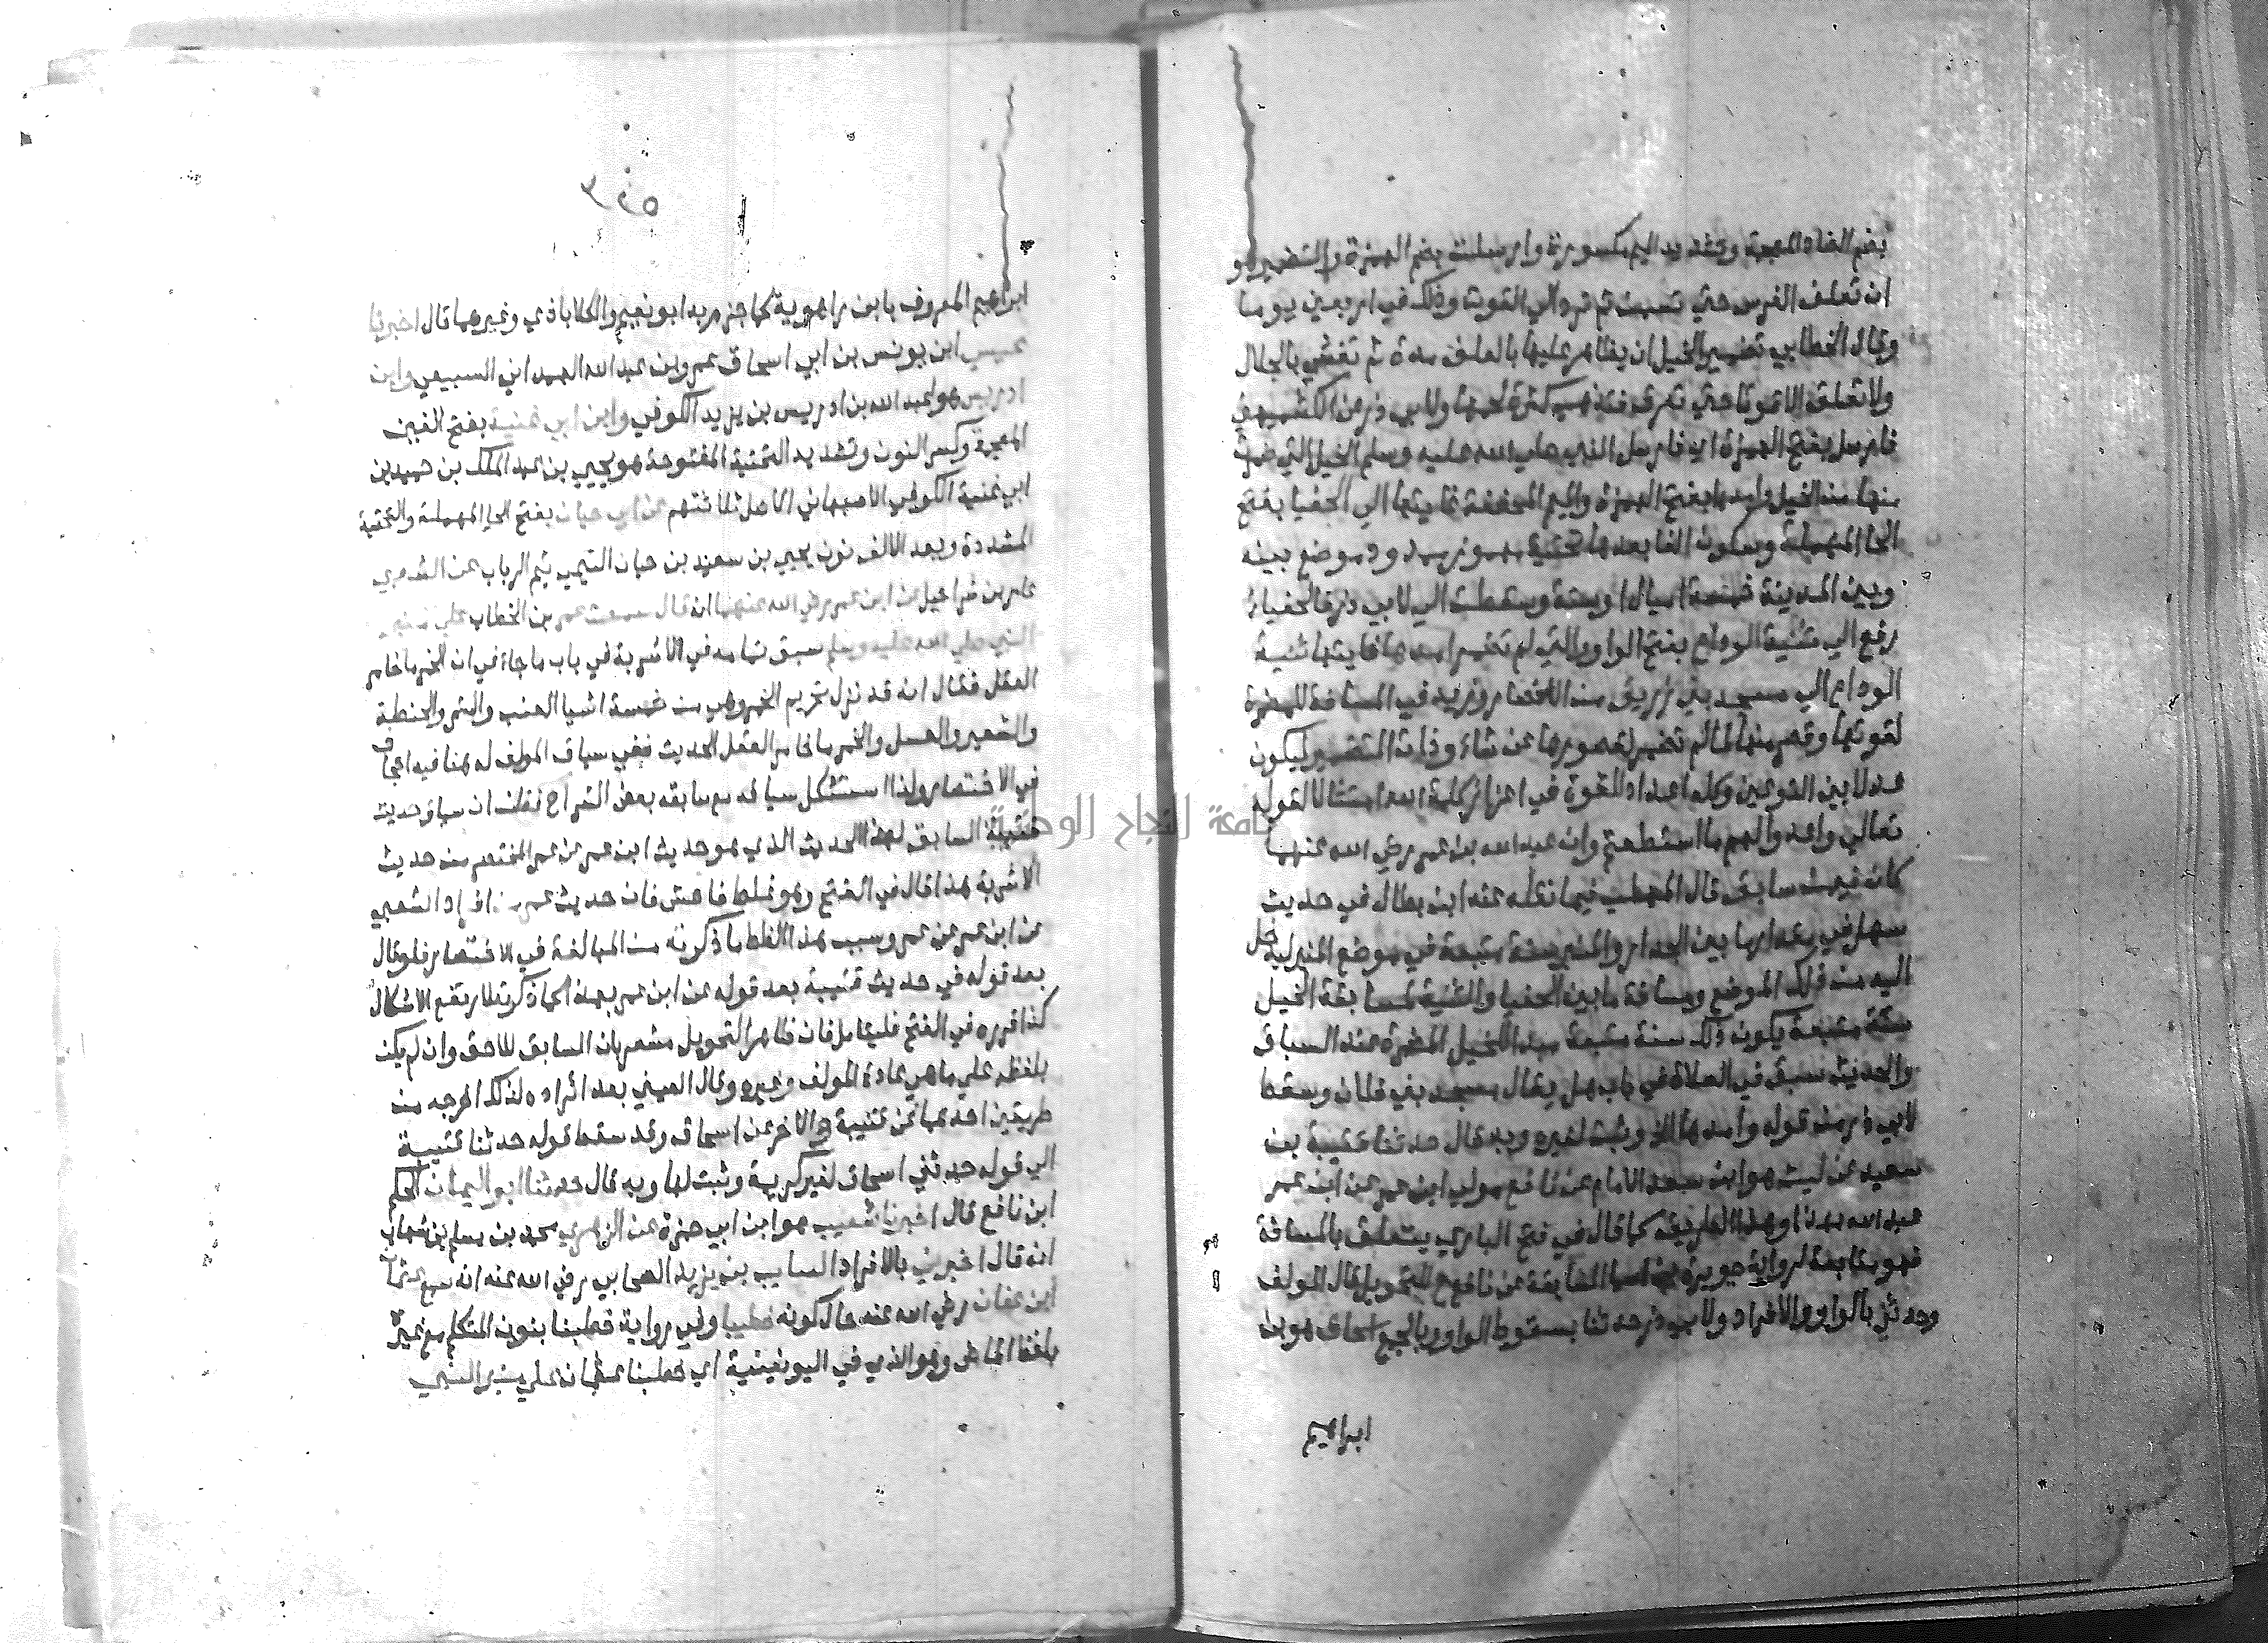 بضم الضاد المعجمة وتشديد الميم مكسورة وارسلت بضم الهمزة والتضمير هو
ان تعلف الفرس حتي تسمن ثم ترد الي القوت وذلك في اربعين يوما
وقال الخطابي تضمير الخيل ان يظاهر عليها بالعلف مدة ثم تغشي بالجلال
ولا تعلف الا قوتا حتي تعرق فتذهب كثرة لحمها ولابي ذر عن الكشميهني
فارسل بفتح الهمزة اي فارسل النبي صلي الله عليه وسلم الخيل التي ضمرت
منها من الخيل وامدها بفتح الهمزة والميم المخففة غايتها الي الحفيا بفتح
الحا المهملة وسكون الفا بعدها تحتية مهموز ممدود موضع بينه
وبين المدينة خمسة اميال او ستة وسقطت الي لابي ذر فالحفياء
رفع الي ثنية الوداع بفتح الواو والتي لم تضمر امدها غايتها ثنية
الوداع الي مسجد بني زريق من الانصار وزيد في المسافة للمضمرة
لقوتها وقصر منها لما لم تضمر لقصورها عن شاو ذات التضمير ليكون
عدلا بين النوعين وكله اعداد للقوة في اعزاز كلمة الله امتثالا لقوله
تعالي واعدوا لهم ما استطعتم وان عبد الله بن عمر رضي الله عنهما
كان فيمن سابق قال المهلب فيما نقله عنه ابن بطال في حديث
سهل في مقدار ما بين الجدار والمنبر سنة متبعة في موضع المنبر ليدخل
اليه من ذلك الموضع ومسافة ما بين الحفيا والثنية لمسابقة الخيل
سنة متبعة يكون ذلك سنة متبعة امدا للخيل المضمرة عند السباق
والحديث سبق في الصلاة في باب هل يقال مسجد بني فلان وسقط
لابي ذر من قوله وامدها الا وثبت لغيره وبه قال حدثنا قتيبة بن
سعيد عن ليث هو ابن سعد الامام عن نافع مولي ابن عمر عن ابن عمر
عبد الله بهذا وهذا الطريق كما قال في فتح الباري يتعلق بالمسابقة
فهو متابعة لرواية جويرية بن اسما السابقة عن نافع ح للتحويل قال المولف
وحدثني بالواو والافراد ولابي ذر حدثنا بسقوط الواو وبالجمع اسحاق هو بن
ابراهيم
٣٢٥
ابراهيم المعروف بابن راهوية كما جزم به ابو نعيم والكلاباذي وغيرهما قال اخبرنا
عيسي ابن يونس بن ابي اسحاق عمرو بن عبد الله الهمداني السبيعي وابن
ادريس هو عبد الله بن ادريس بن يزيد الكوفي وابن ابي غنية بفتح الغين
المعجمة وكسر النون وتشديد التحتية المفتوحة هو يحيي بن عبد الملك بن حميد بن
ابي غنية الكوفي الاصبهاني الاصل ثلاثتهم عن ابي حيان بفتح الحا المهملة والتحتية
المشددة وبعد الالف نون يحيي بن سعيد بن حيان التيمي تيم الرباب عن الشعبي
عامر بن شراحيل عن ابن عمر رضي الله عنهما ان قال سمعت عمر بن الخطاب علي منبر
النبي صلي الله عليه وسلم سبق تمامه في الاشربة في باب ما جاء في ان الخمر ما خامر
العقل فقال انه قد نزل تحريم الخمر وهي من خمسة اشيا العنب والتمر والحنطة
والشعير والعسل والخمر ما خامر العقل الحديث ففي سياق المولف له هنا فيه اعجاف
في الاختصار ولذا استشكل سياقه مع سابقه بعض الشراح فظن ان سياق حديث
قتيبة السابق لهذا الحديث الذي هو حديث ابن عمر عن عمر المختصر من حديث
الاشربة هذا قال في الفتح وهو غلط فاحش فان حديث عمر من افراد الشعبي
عن ابن عمر عن عمر وسبب هذا الغلط ما ذكرته من المبالغة في الاختصار فلو قال
بعد قوله في حديث قتيبة بعد قوله عن ابن عمر بهذا كما ذكرته لارتفع الاشكال
كذا قرره في الفتح فليتامل فان ظاهر التحويل مشعر بان السابق للاحق وان لم يكن
بلفظه علي ما هي عادة المولف وغيره وقال العيني بعد ايراده لذلك اخرجه من
طريقين احدهما عن قتيبة والاخر عن اسحاق وقد سقط قوله حدثنا قتيبة
الي قوله حدثني اسحاق لغير كريمة وثبت لها وبه قال حدثنا ابو اليمان الحكم
ابن نافع قال اخبرنا شعيب هو ابن ابي حمزة عن الزهري محمد بن مسلم بن شهاب
انه قال اخبرني بالافراد السايب بن يزيد الصحابي رضي الله عنه انه سمع عثمان
ابن عفان رضي الله عنه حال كونه خطيبا وفي رواية خطبنا بنون المتكلم مع غيره
بلفظ الماضي وهو الذي في اليونينية اي خطبنا عثمان علي منبر النبي
جامعة النجاح الوطنية